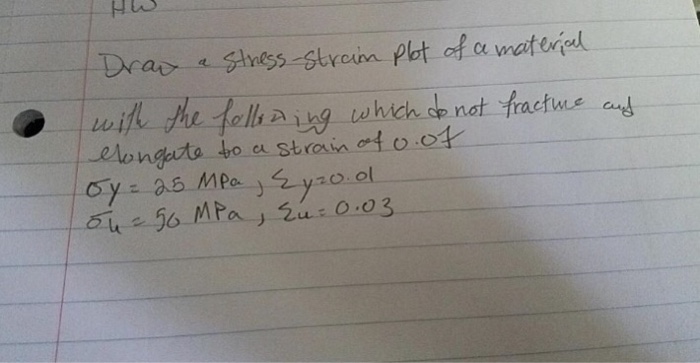 HW
Draw a stress-strain plot of a material
with the following which do not fracture and
elongate to a strain of
σy = 25 MPa, Σy=0.01
σu = 50 MPa, Σu = 0.03